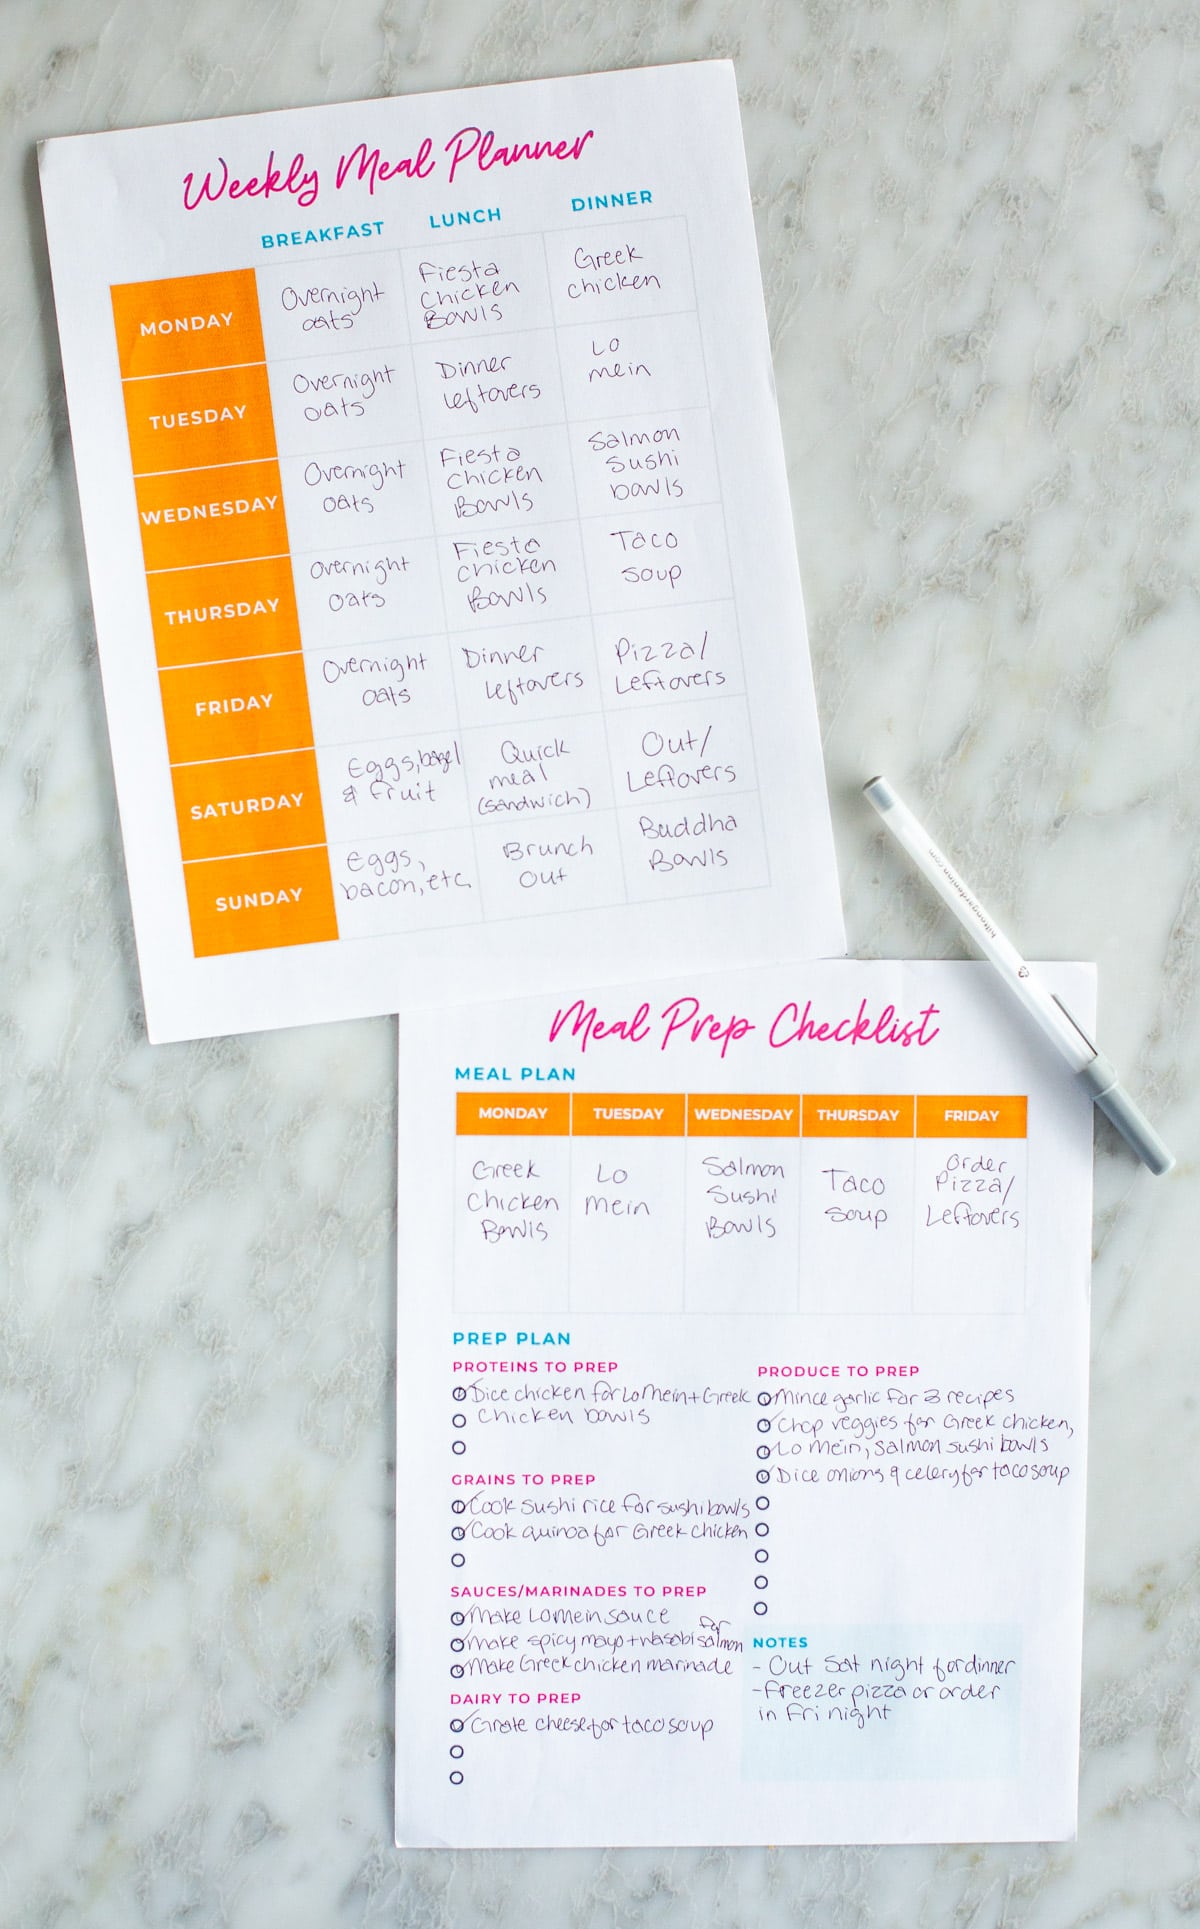 Weekly Meal Planner
BREAKFAST LUNCH DINNER
MONDAY
Overnight
oats
Fiesta
Chicken
Bowls
Greek
chicken
TUESDAY
Overnight
oats
Dinner
Leftovers
Lo
mein
WEDNESDAY
Overnight
oats
Fiesta
Chicken
Bowls
Salmon
Sushi
bowls
THURSDAY
Overnight
oats
Fiesta
Chicken
Bowls
Taco
Soup
FRIDAY
Overnight
oats
Dinner
Leftovers
Pizza/
Leftovers
SATURDAY
Eggs, bagel
& fruit
Quick
meal
(sandwich)
Out/
Leftovers
SUNDAY
Eggs,
bacon, etc.
Brunch
Out
Buddha
Bowls
hiltongardeninn.com
Meal Prep Checklist
MEAL PLAN
MONDAY TUESDAY WEDNESDAY THURSDAY FRIDAY
Greek
Chicken
Bowls
Lo
Mein
Salmon
Sushi
Bowls
Taco
Soup
Order
Pizza/
Leftovers
PREP PLAN
PROTEINS TO PREP
Dice chicken for Lo Mein + Greek
Chicken bowls
GRAINS TO PREP
Cook sushi rice for sushi bowls
Cook quinoa for Greek chicken
SAUCES/MARINADES TO PREP
Make Lo Mein sauce
Make spicy mayo + wasabi for salmon
Make Greek chicken marinade
DAIRY TO PREP
Grate cheese for taco soup
PRODUCE TO PREP
Mince garlic for 3 recipes
Chop veggies for Greek chicken,
Lo mein, salmon sushi bowls
Dice onions & celery for taco soup
NOTES
- Out Sat night for dinner
- Freezer pizza or order
in Fri night